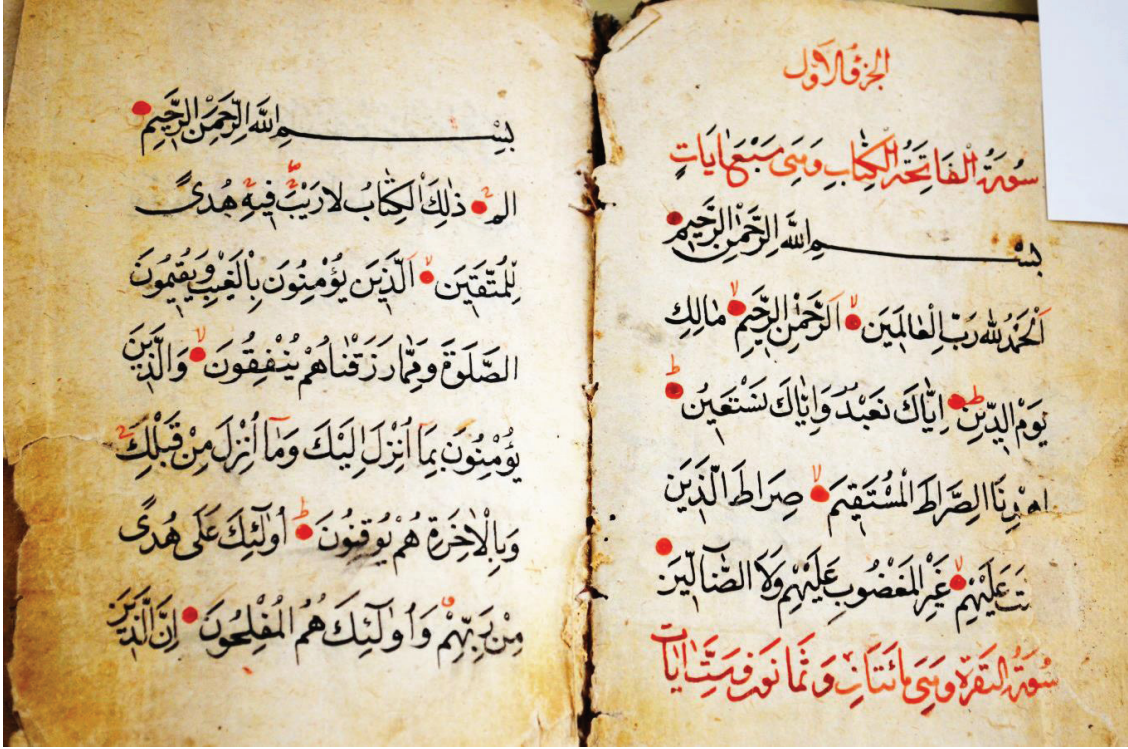 الجزؤ الاول
سُورَةُ الْفَاتِحَةُ الْكِتَابِ وَهِىَ سَبْعَ اٰيَاتٍ
بِسْــــمِ اللّٰهِ الرَّحْمٰنِ الرَّحِيْمِ
اَلْحَمْدُ لِلّٰهِ رَبِّ الْعٰالَمِيْنَ اَلرَّحْمٰنِ الرَّحِيْمِ مٰالِكِ
يَوْمِ الدِّيْنِ اِيَّاكَ نَعْبُدُ وَاِيَّاكَ نَسْتَعِيْنُ
اهْدِنَا الصِّرَاطَ الْمُسْتَقِيْمَ صِرَاطَ الَّذِيْنَ
ـتَ عَلَيْهِمْ غَيْرِ الْمَغْضُوبِ عَلَيْهِمْ وَلَا الضَّالِّيْنَ
سُورَةُ الْبَقَرَةِ وَهِىَ مِائَتَانِ وَثَمَانُوْنَ وَسِتَّ اٰيَات
بِسْــــمِ اللّٰهِ الرَّحْمٰنِ الرَّحِيْمِ
الم ذٰلِكَ الْكِتٰابُ لَا رَيْبَ فِيْهِ هُدًى
لِلْمُتَّقِيْنَ اَلَّذِيْنَ يُؤْمِنُوْنَ بِالْغَيْبِ وَيُقِيْمُونَ
الصَّلٰوةَ وَمِمَّا رَزَقْنَاهُمْ يُنْفِقُوْنَ وَالَّذِيْنَ
يُؤْمِنُوْنَ بِمَآ اُنْزِلَ اِلَيْكَ وَمَآ اُنْزِلَ مِنْ قَبْلِكَ
وَبِالْاٰخِرَةِ هُمْ يُوْقِنُوْنَ اُولٰٓئِكَ عَلٰى هُدًى
مِنْ رَبِّهِمْ وَاُولٰٓئِكَ هُمُ الْمُفْلِحُوْنَ اِنَّ الَّذِيْنَ